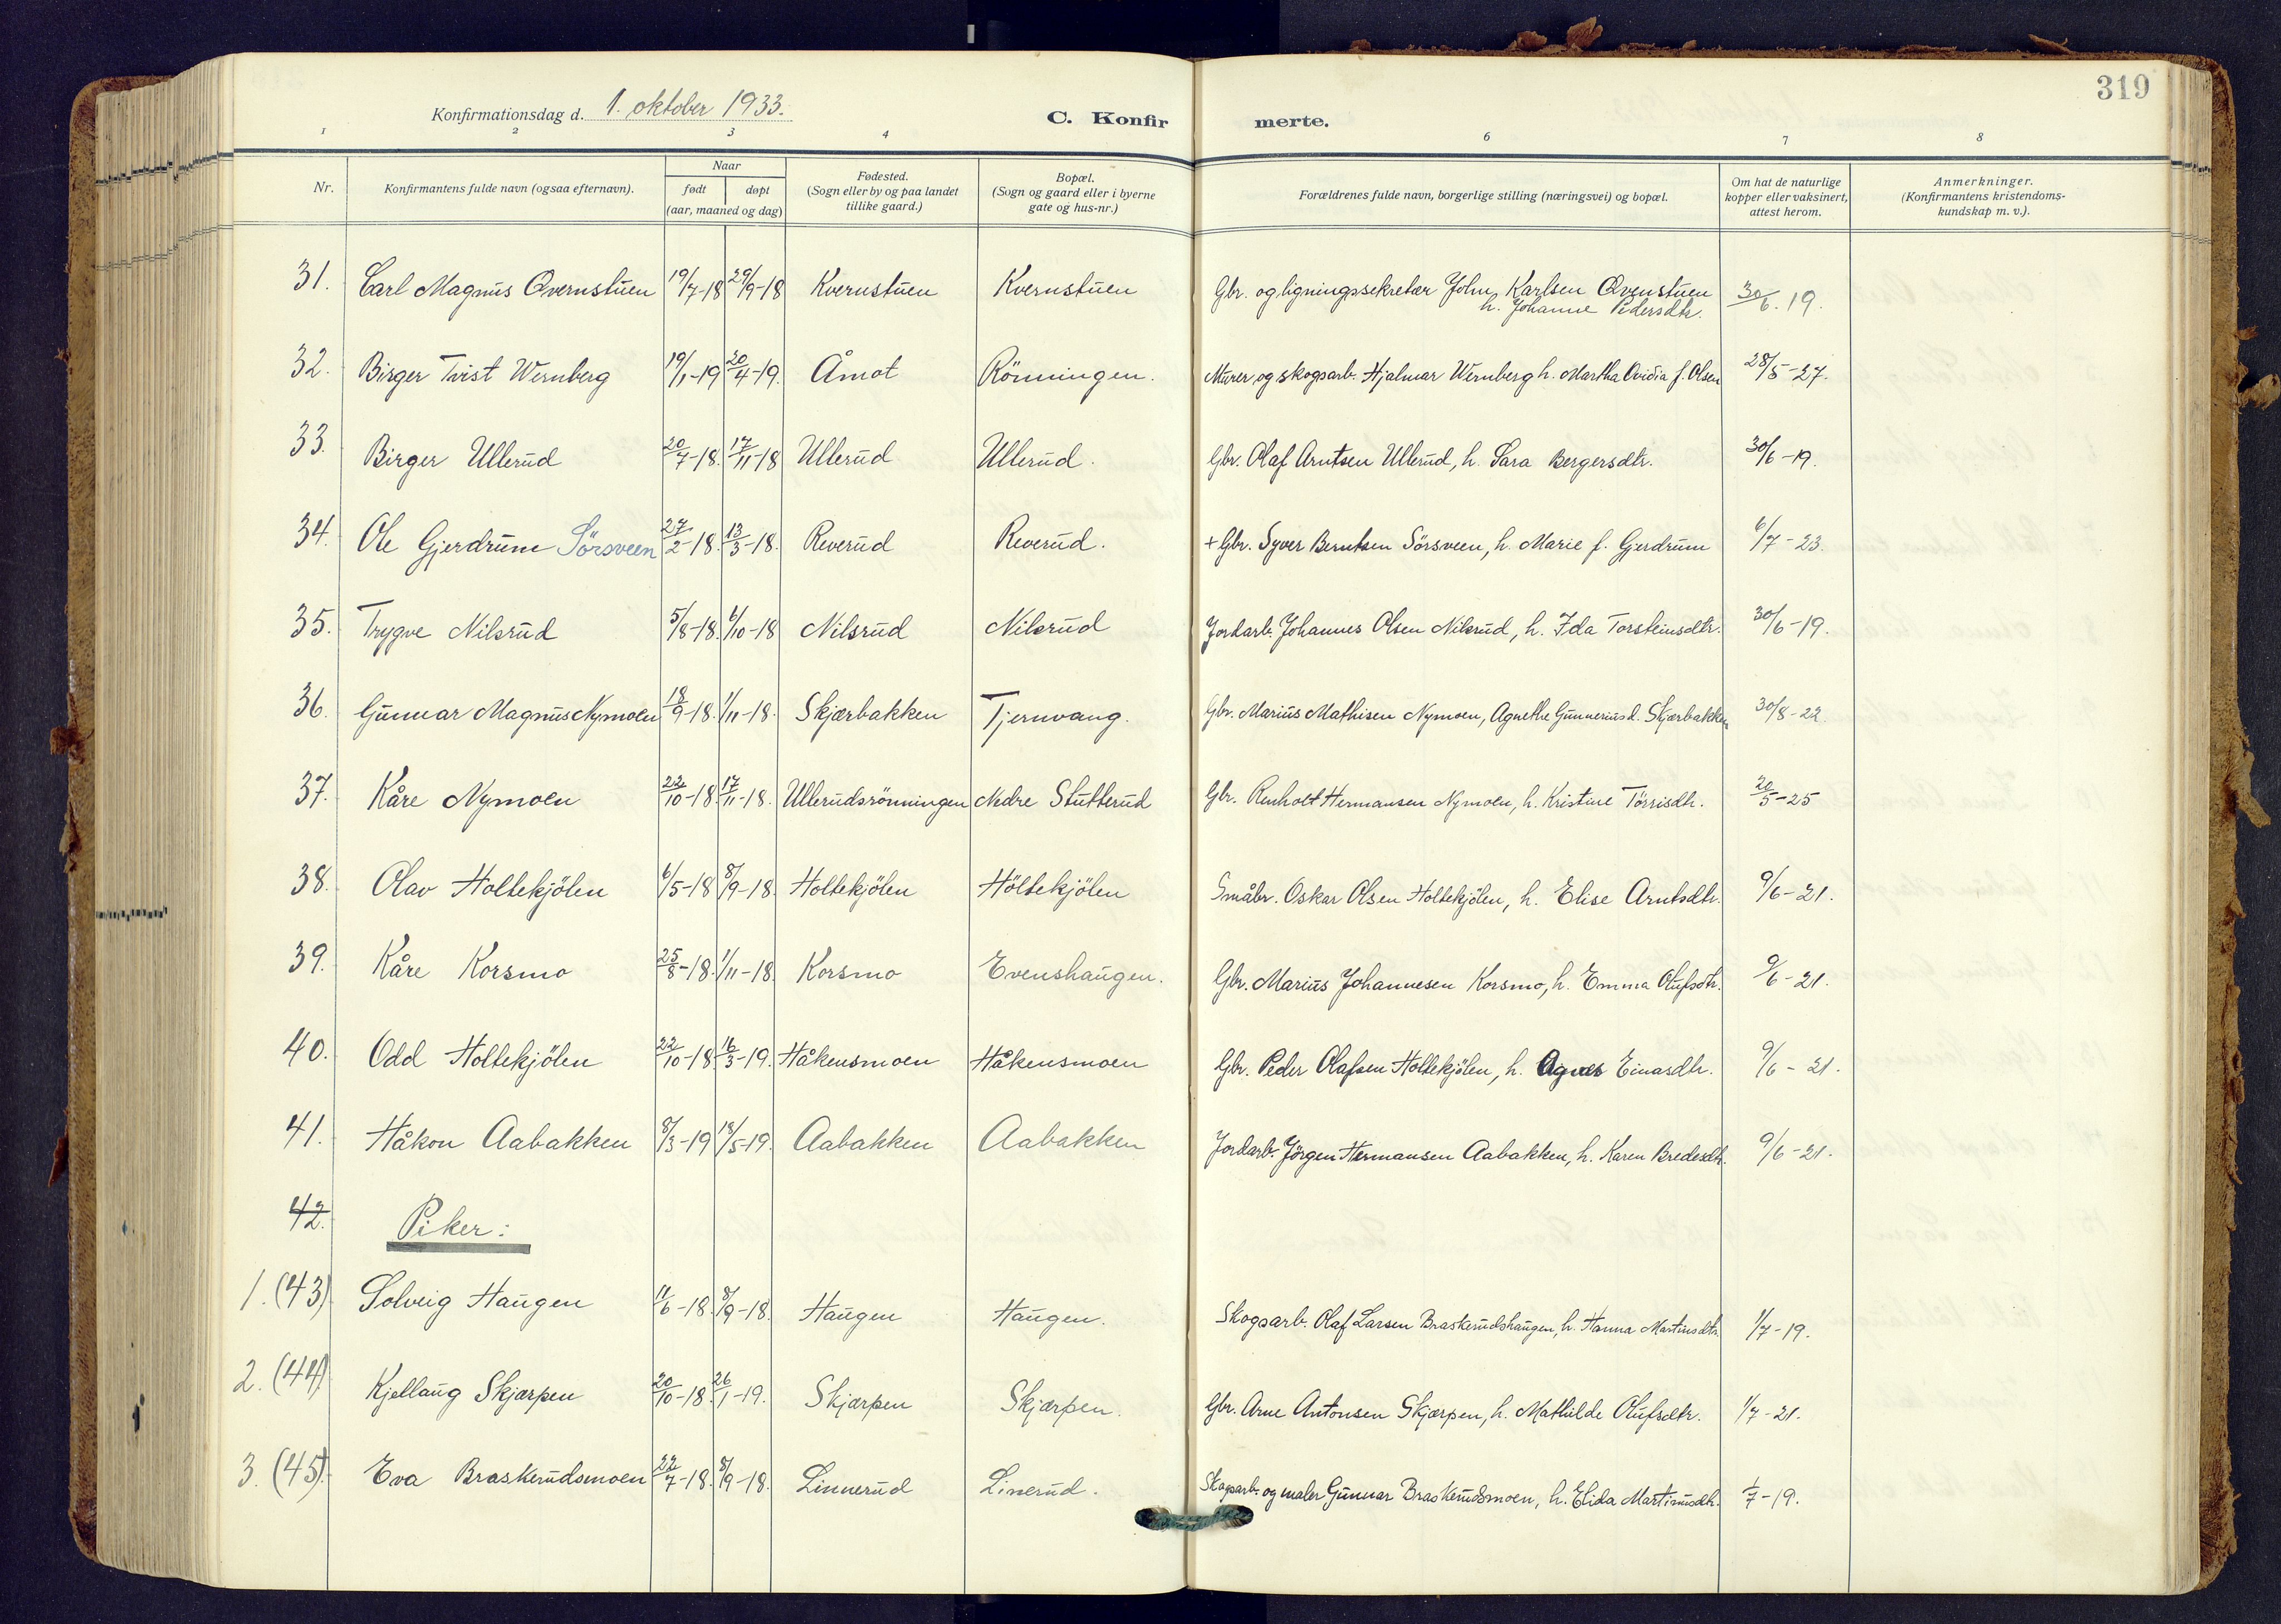 319
Konfirmationsdag d. 1. oktober 1933.
C. Konfirmerte.
1 2 3 4 6 7 8
Nr.
Konfirmantens fulde navn (ogsaa efternavn).
Naar
født døpt
(aar, maaned og dag)
Fødested.
(Sogn eller by og paa landet
tillike gaard.)
Bopæl.
(Sogn og gaard eller i byerne
gate og hus-nr.)
Forældrenes fulde navn, borgerlige stilling (næringsvei) og bopæl.
Om hat de naturlige
kopper eller vaksinert,
attest herom.
Anmerkninger.
(Konfirmantens kristendoms-
kundskap m. v.).
31. Carl Magnus Qvernstuen 19/7-18 29/9-18 Kvernstuen Kvernstuen Gbr. og ligningssekretær John Karlsen Qvenstuen 30/6. 19.
h. Johanne Pedersdtr.
32. Birger Tvist Wernberg 19/1-19 20/4-19. Åmot Rönningen. Murer og skogsarb. Hjalmar Wernberg h. Martha Ovidia f. Olsen 28/5-27.
33. Birger Ullerud 20/7-18. 17/11-18 Ullerud Ullerud. Gbr. Olaf Arntsen Ullerud, h. Sara Bergersdtr. 30/6-19.
34. Ole Gjerdrum Sörsveen 27/2-18. 13/3-18. Reverud Reverud. + Gbr. Syver Berntsen Sörsveen, h. Marie f. Gjerdrum 6/7-23.
35. Trygve Nilsrud 5/8-18. 6/10-18 Nilsrud Nilsrud Jordarb. Johannes Olsen Nilsrud, h. Ida Torsteinsdtr. 30/6-19.
36. Gunnar Magnus Nymoen 18/9-18. 1/11-18. Skjærbakken Tjernvang. Gbr. Marius Mathisen Nymoen, Agnethe Gunneriusd. Skjærbakken 30/8-22.
37. Kåre Nymoen 22/10-18. 17/11-18. Ullerudsrönningen Nedre Stutterud Gbr. Renholt Hermansen Nymoen, h. Kristine Törrisdtr. 20/5-25
38. Olav Holtekjölen 6/5-18 8/9-18. Holtekjölen Höltekjölen Småbr. Oskar Olsen Holtekjölen, h. Elise Arntsdtr. 9/6-21.
39. Kåre Korsmo 25/8-18. 1/11-18. Korsmo Evenshaugen. Gbr. Marius Johannesen Korsmo, h. Emma Olufsdtr. 9/6-21.
40. Odd Holtekjölen 22/10-18. 16/3-19. Håkensmoen Håkensmoen Gbr. Peder Olafsen Holtekjölen, h. Agnes Einasdtr. 9/6-21.
41. Håkon Aabakken 8/3-19 18/5-19. Aabakken Aabakken Jordarb. Jörgen Hermansen Aabakken, h. Karen Bredesdtr. 9/6-21.
42. Piker:
1. (43) Solveig Haugen 11/6-18. 8/9-18. Haugen Haugen. Skogsarb. Olaf Larsen Braskerudshaugen, h. Hanna Martinsdtr. 1/7-19.
2. (44) Kjellaug Skjærpen 20/10-18. 26/1-19. Skjærpen Skjærpen. Gbr. Arne Antonsen Skjærpen, h. Mathilde Olufsdtr. 1/7-21.
3. (45). Eva Braskerudsmoen 22/7-18. 8/9-18. Linnerud Linerud. Skogsarb. og maler Gunnar Braskerudsmoen, h. Elida Martinusdtr. 1/7-19.